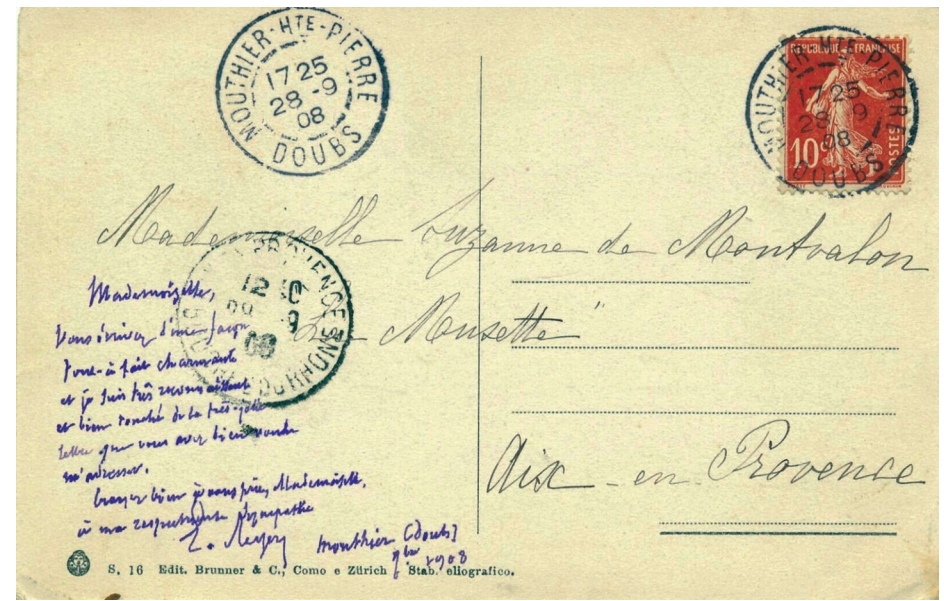 MOUTHIER-HTE-PIERRE
17 25
28 -9
08
DOUBS
REPUBLIQUE FRANÇAISE
10c
POSTES
MOUTHIER-HTE-PIERRE
17 25
28 -9
08
DOUBS
Mademoiselle Suzanne de Montvalon
"La Musette"
Aix - en Provence
PROVENCE
12 10
-9
08
DU RHONE
Mademoiselle,
Vous écrivez d'une façon
tout-à fait charmante
et je suis très reconnaissant
et bien touché de la très-jolie
lettre que vous avez bien voulu
m'adresser.
Croyez bien je vous prie, Mademoiselle,
à ma respectueuse sympathie
Mouthier (Doubs)
7bre 1908
S. 16 Edit. Brunner & C., Como e Zürich Stab. eliografico.